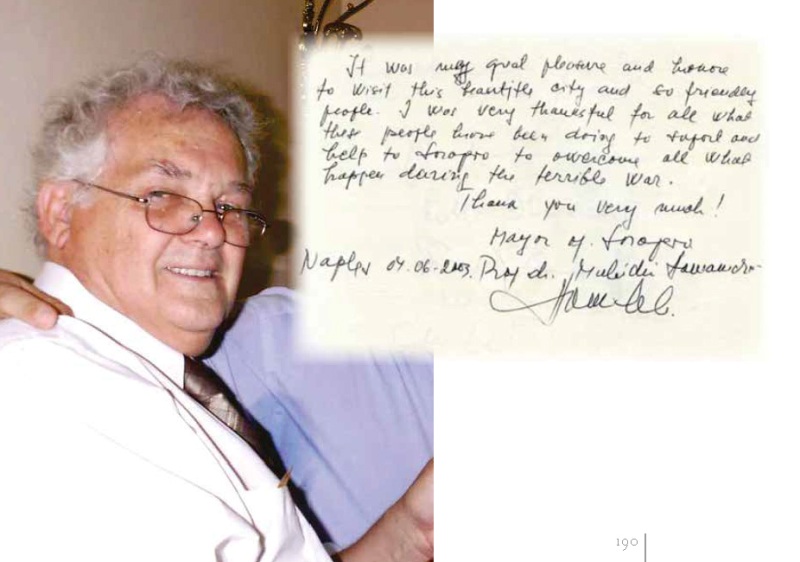 It was my great pleasure and honore
to visit this beautifle city and so friendly
people. I was very thanksful for all what
these people have been doing to suport and
help to Saraevo to overcome all what
happen during the terrible war.
Thank you very much!
Mayor of Saraevo
Naples 04.06.2003. Prof dr. Muhidin
190